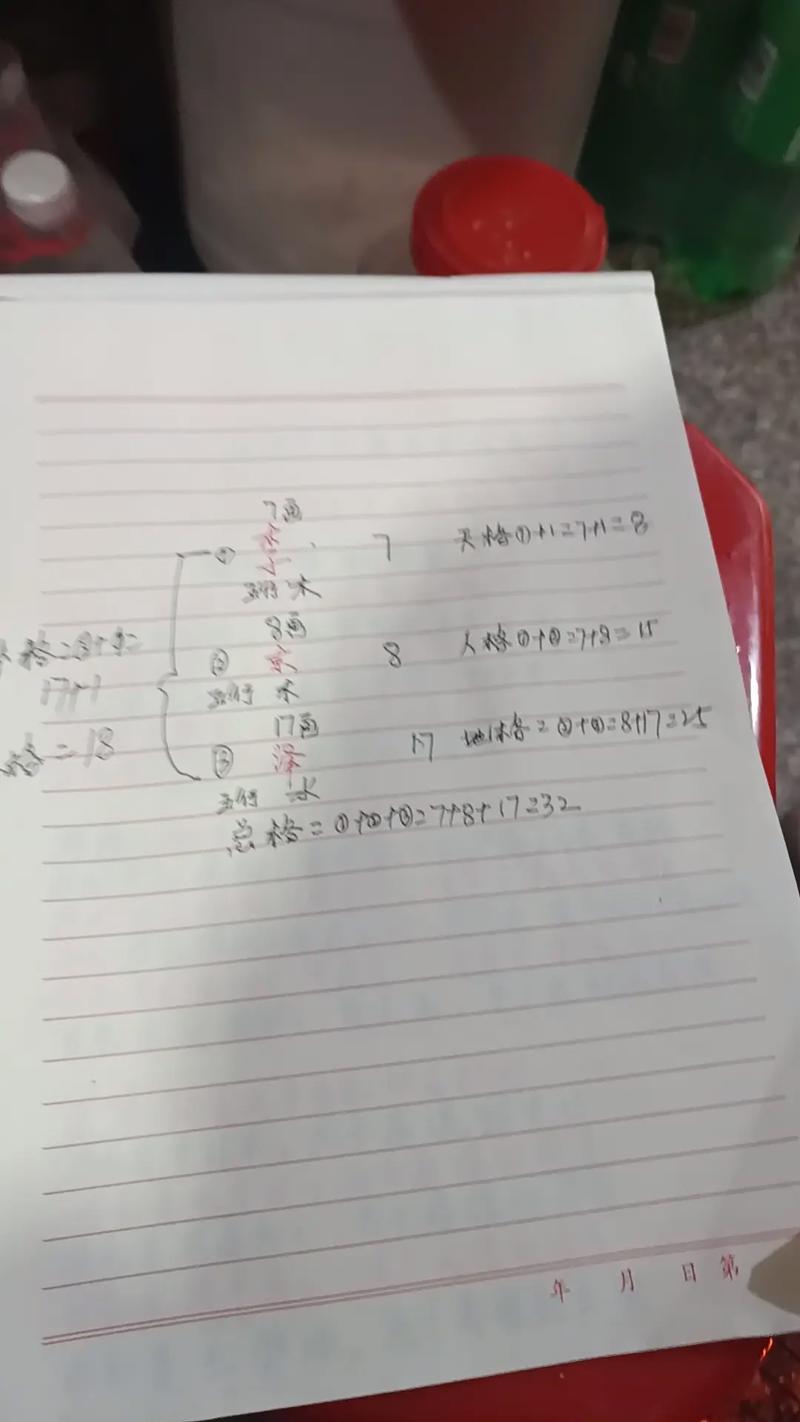 7画
① 李 7 天格①+1=7+1=8
五行 木
8画
② 京 8 人格①+②=7+8=15
五行 木
17画
③ 泽 17 地格=②+③=8+17=25
五行 水
总格=①+②+③=7+8+17=32
格=③+1=
17+1
格=18
年 月 日 第